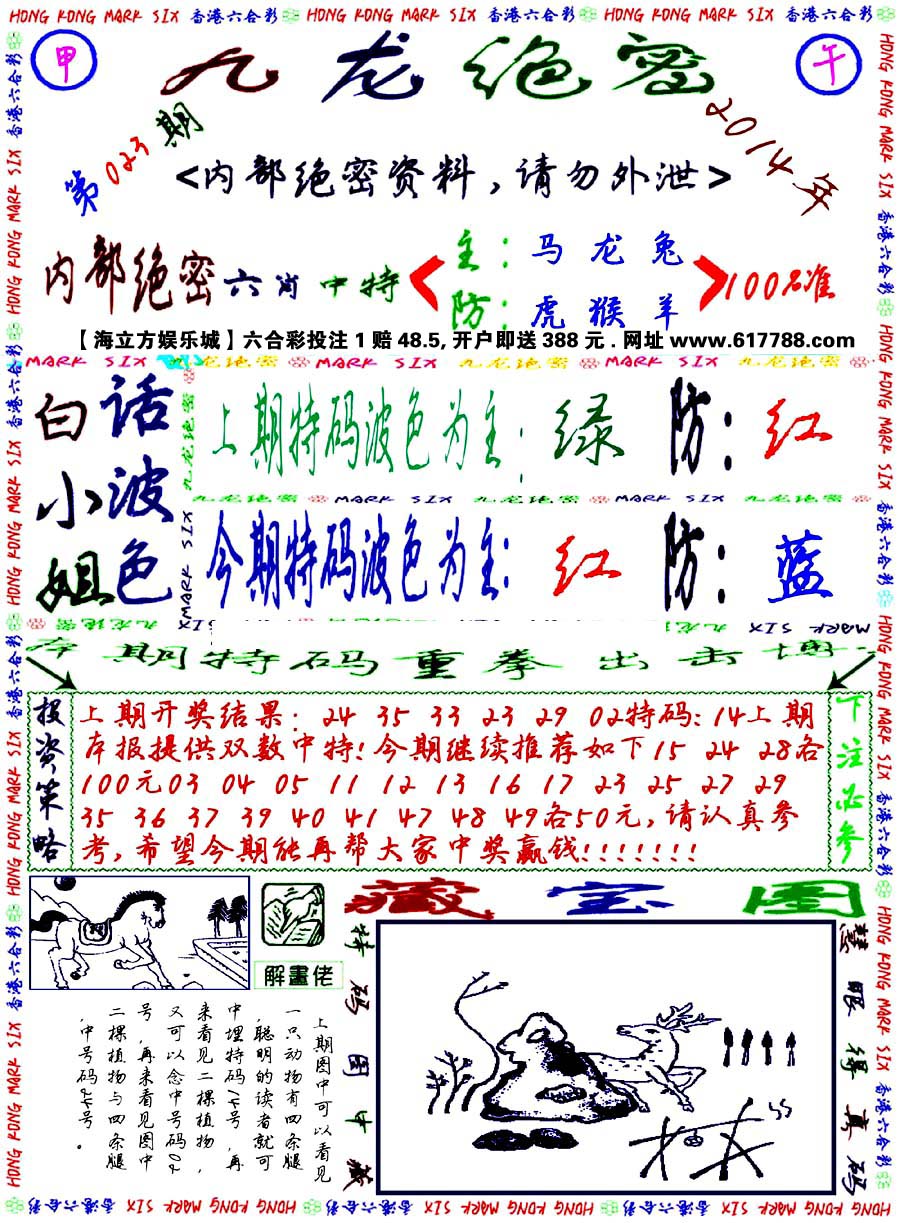 HONG KONG MARK SIX 香港六合彩 HONG KONG MARK SIX 香港六合彩 HONG KONG MARK SIX 香港六合彩
甲
九龙绝密
午
第023期
2014年
<内部绝密资料,请勿外泄>
内部绝密六肖中特
主:马龙兔
防:虎猴羊
100%准
【海立方娱乐城】六合彩投注1赔48.5,开户即送388元.网址www.617788.com
MARK SIX 九龙绝密 MARK SIX 九龙绝密 MARK SIX 九龙绝密 MARK SIX
白话
小波
姐色
上期特码波色为主:绿 防:红
九龙绝密 MARK SIX 九龙绝密 MARK SIX 九龙绝密
今期特码波色为主:红 防:蓝
本期特码重拳出击博
投资策略
上期开奖结果:24 35 33 23 29 02特码:14上期
本报提供双数中特!今期继续推荐如下15 24 28各
100元03 04 05 11 12 13 16 17 23 25 27 29
35 36 37 39 40 41 47 48 49各50元,请认真参
考,希望今期能再帮大家中奖赢钱!!!!!!!
下注必参
藏宝图
解畫佬
特码图中藏
慧眼得真码
上期图中可以看见
一只动物有四条腿
,聪明的读者就可
中埋特码14号,再
来看见二棵植物,
又可以念中号码02
号,再来看见图中
二棵植物与四条腿
,中号码24号。